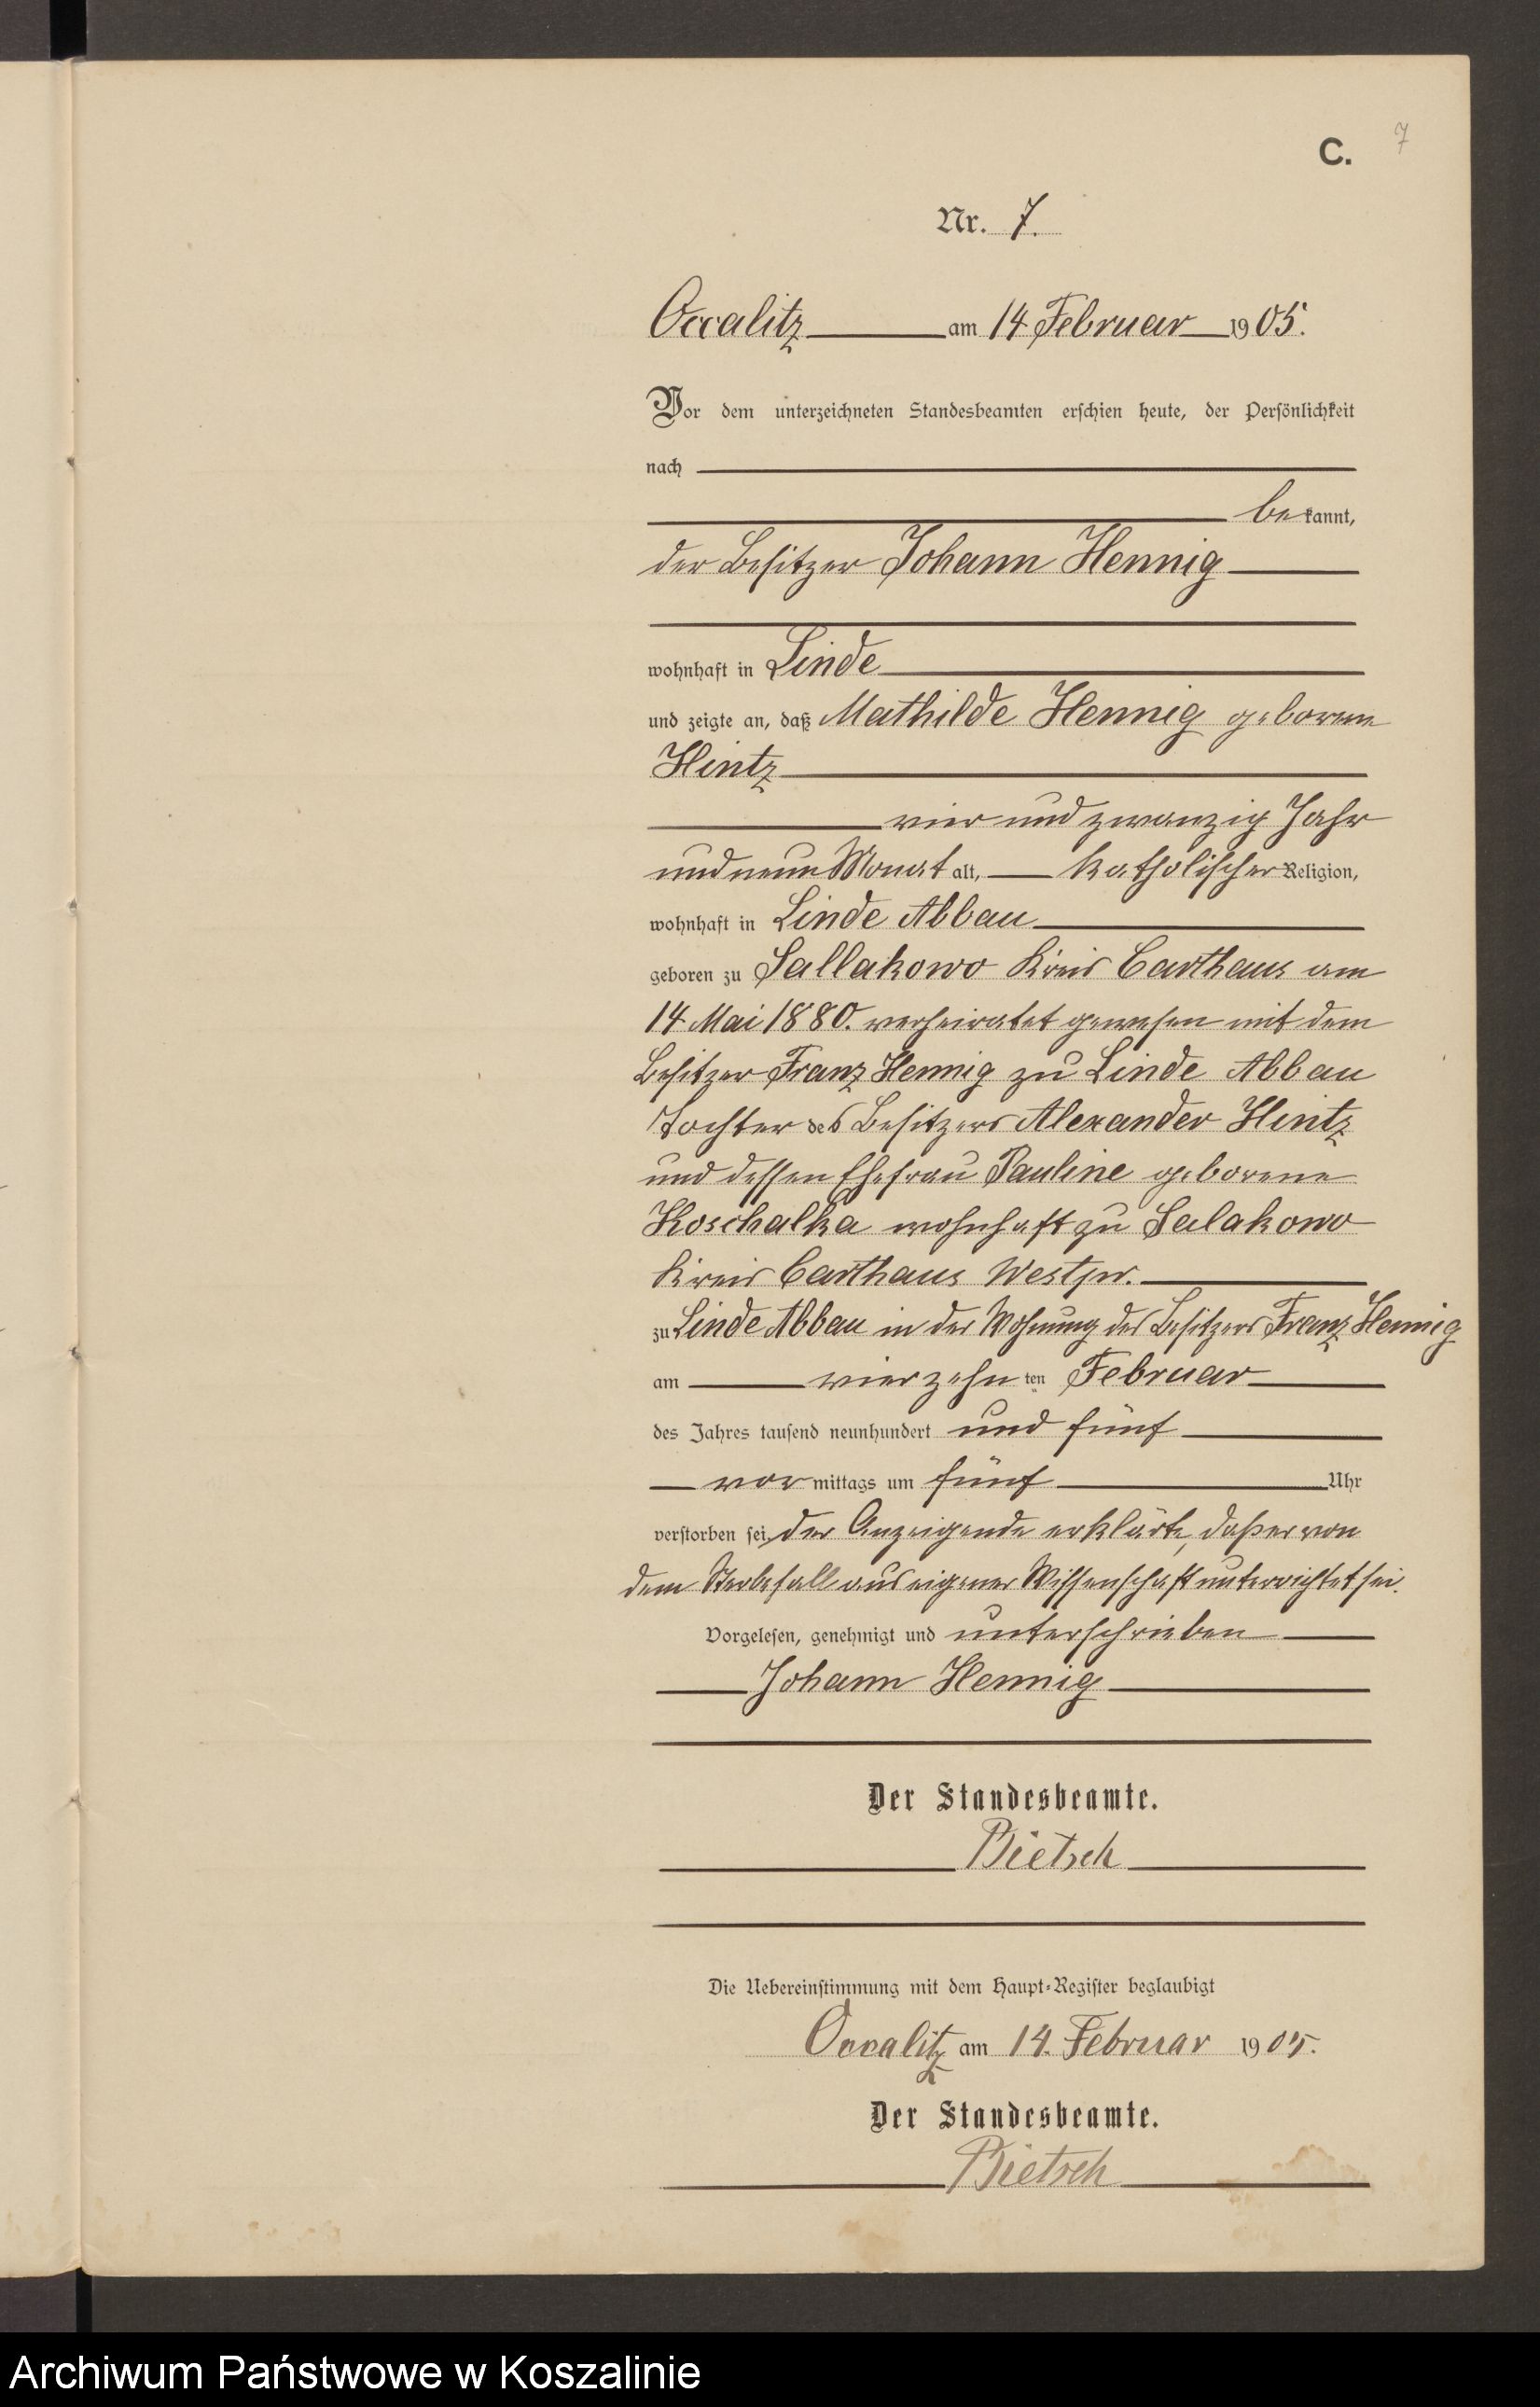 C. 7
Nr. 7.
Occalitz am 14 Februar 1905.
Vor dem unterzeichneten Standesbeamten erschien heute, der Persönlichkeit
nach
bekannt,
der Besitzer Johann Hennig
wohnhaft in Linde
und zeigte an, daß Mathilde Hennig geborene
Hintz
vier und zwanzig Jahr
und neun Monat alt, katholischer Religion,
wohnhaft in Linde Abbau
geboren zu Sallakowo Kreis Carthaus am
14 Mai 1880. verheiratet gewesen mit dem
Besitzer Franz Hennig zu Linde Abbau
Tochter des Besitzers Alexander Hintz
und dessen Ehefrau Pauline geborene
Koschalka wohnhaft zu Salakowo
Kreis Carthaus Westpr.
zu Linde Abbau in der Wohnung des Besitzers Franz Hennig
am vierzehn ten Februar
des Jahres tausend neunhundert und fünf
vor mittags um fünf Uhr
verstorben sei, der Anzeigende erklärte, daß er von
dem Sterbefall aus eigener Wissenschaft unterrichtet sei.
Vorgelesen, genehmigt und unterschrieben
Johann Hennig
Der Standesbeamte.
Bietsch
Die Uebereinstimmung mit dem Haupt-Register beglaubigt
Occalitz am 14. Februar 1905.
Der Standesbeamte.
Bietsch
Archiwum Państwowe w Koszalinie